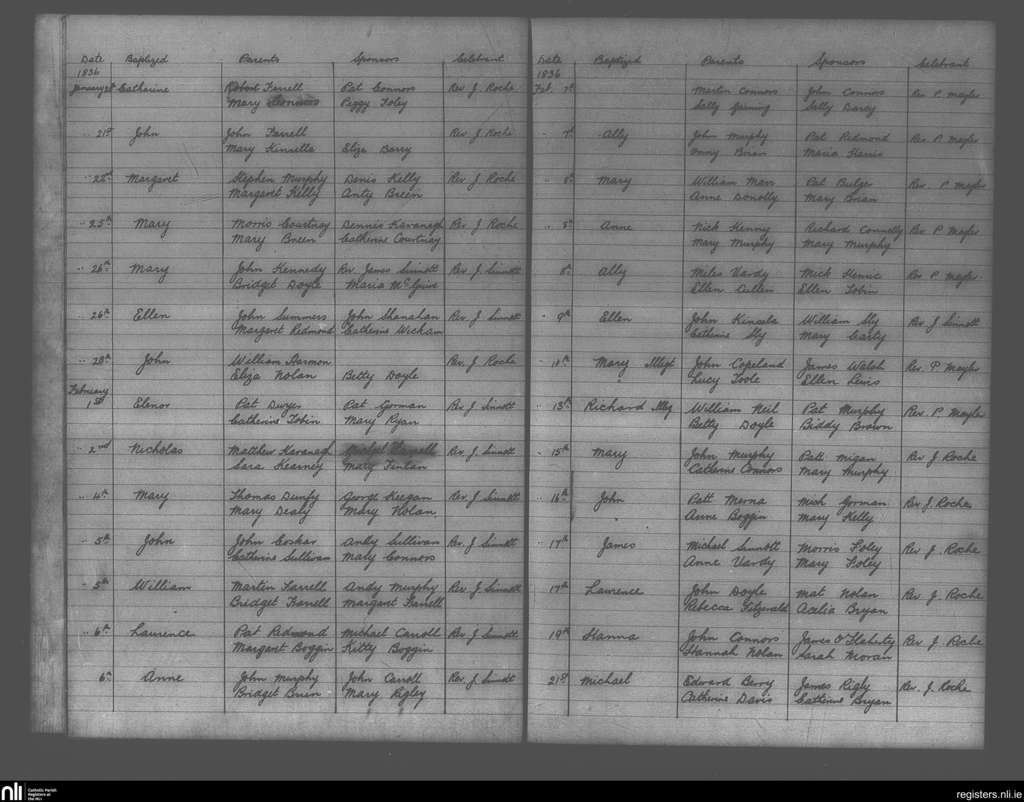 Date Baptized Parents Sponsors Celebrant
1836
January Catherine Robert Farrell Pat Connors Rev J. Roche
Mary Peggy Foley
" 21st John John Farrell Rev J. Roche
Mary Kinsella Eliza Barry
" 22nd Margaret Stephen Murphy Denis Kelly Rev J. Roche
Margaret Kelly Anty Breen
" 25th Mary Morris Courtnay Dennis Kavanagh Rev J. Roche
Mary Breen Catherine Courtnay
" 26th Mary John Kennedy Rev James Sinnott Rev J. Sinnott
Bridget Doyle Maria McGuire
" 26th Ellen John Summers John Shanahan Rev J. Sinnott
Margaret Redmond Catherine Wickam
" 28th John William Harmon Rev. J. Roche
Eliza Nolan Betty Doyle
February
1st Elenor Pat Dwyer Pat Gorman Rev J. Sinnott
Catherine Tobin Mary Ryan
" 2nd Nicholas Matthew Kavanagh Rev J. Sinnott
Sara Kearney Mary Fenlan
" 4th Mary Thomas Dunfy George Keegan Rev J. Sinnott
Mary Dealy Mary Nolan
" 5th John John Coskar Andy Sullivan Rev J. Sinnott
Catherine Sullivan Mary Connors
" 5th William Martin Farrell Andy Murphy Rev J. Sinnott
Bridget Farrell Margaret Farrell
" 6th Laurence Pat Redmond Michael Carroll Rev J. Sinnott
Margaret Boggin Kitty Boggin
6th Anne John Murphy John Carroll Rev. J. Sinnott
Bridget Brien Mary Rigley
Date Baptized Parents Sponsors Celebrant
1836
Feb. 7th Martin Connors John Connors Rev P. Mayler
Sally Sally Darcy
" 7th Ally John Murphy Pat Redmond Rev P. Mayler
Brien Maria Harris
" 8th Mary William Marr Pat Bulger Rev. P. Mayler
Anne Donolly Mary Brian
" 8th Anne Nick Kenny Richard Connolly Rev P. Mayler
Mary Murphy Mary Murphy
8th Ally Meles Vardy Mick Rev P. Mayler
Ellen Cullen Ellen Tobin
" 9th Ellen John Kinsela William Sly Rev J Sinnott
Catherine Sly Mary Carty
" Mary Illegt John Copeland James Walsh Rev. P Mayler
Lucy Toole Ellen Lewis
" 13th Richard Illeg William Neil Pat Murphy Rev P. Mayler
Betty Doyle Biddy Brown
" 15th Mary John Murphy Patt Migan Rev J Roche
Catherine Connors Mary Murphy
" 16th John Patt Merna Mich Gorman Rev J. Roche
Anne Boggin Mary Kelly
" 17th James Michael Sinnott Morris Foley Rev J. Roche
Anne Vardy Mary Foley
17th Laurence John Doyle Mat Nolan Rev J. Roche
Rebecca Fitzgerald Acelia Bryan
19th Hanna John Connors James O'Flaherty Rev J. Roche
Hannah Nolan Sarah Moran
21st Michael Edward Berry James Rigly Rev. J. Roche
Catherine Davis Catherine Bryan
nli
Catholic Parish
Registers at
the NLI
registers.nli.ie